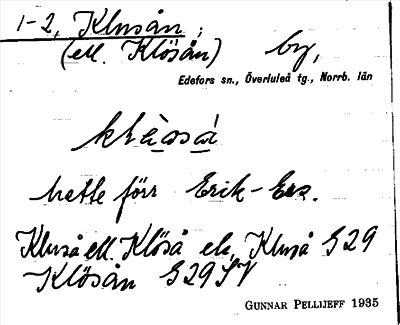 1-2, Klusån;
(ell. Klösån) by,
Edefors sn., Överluleå tg., Norrb. län
hette förr Erik-Ers.
Kluså ell. Klöså elv, Kluså S29
Klösån S29SV
GUNNAR PELLIJEFF 1935